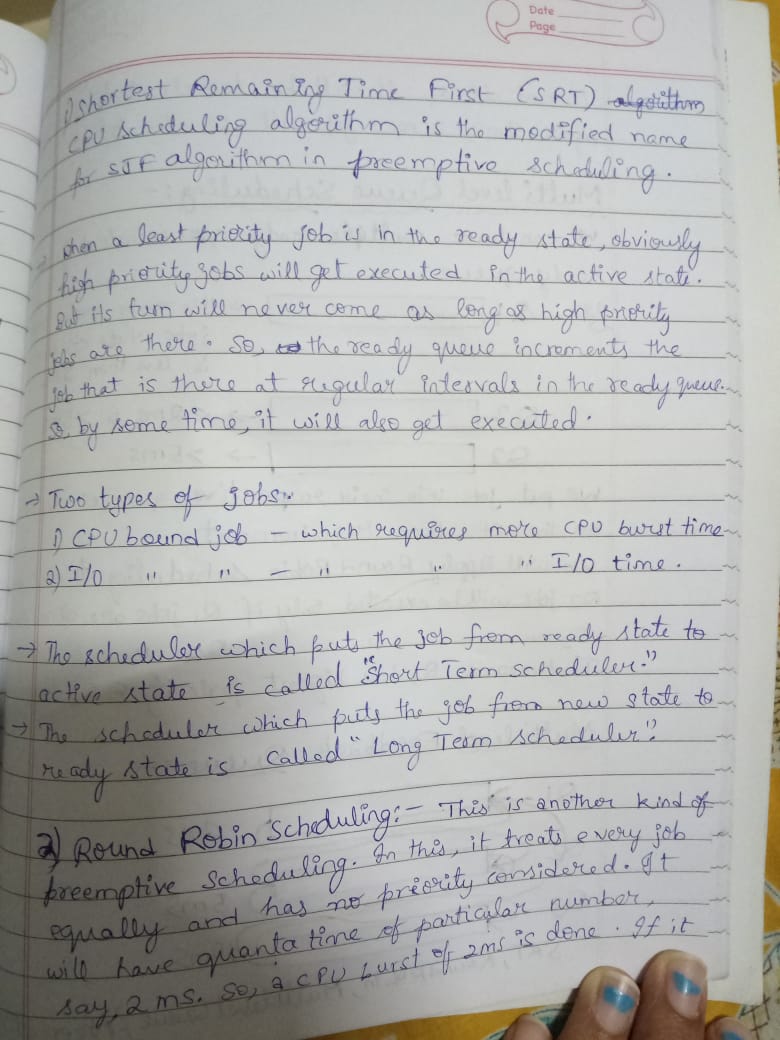 Date
Page
1) Shortest Remaining Time First (SRT) algorithm
CPU scheduling algorithm is the modified name
for SJF algorithm in preemptive scheduling.
→ When a least priority job is in the ready state, obviously
high priority jobs will get executed in the active state.
But its turn will never come as long as high priority
jobs are there. So, the ready queue increments the
job that is there at regular intervals in the ready queue.
So, by some time, it will also get executed.
→ Two types of jobs:-
1) CPU bound job - which requires more CPU burst time
2) I/O " " - " " " I/O time.
→ The scheduler which puts the job from ready state to
active state is called "Short Term scheduler."
→ The scheduler which puts the job from new state to
ready state is called "Long Term scheduler".
2) Round Robin Scheduling:- This is another kind of
preemptive scheduling. In this, it treats every job
equally and has no priority considered. It
will have quanta time of particular number,
say, 2 ms. So, a CPU burst of 2ms is done. If it